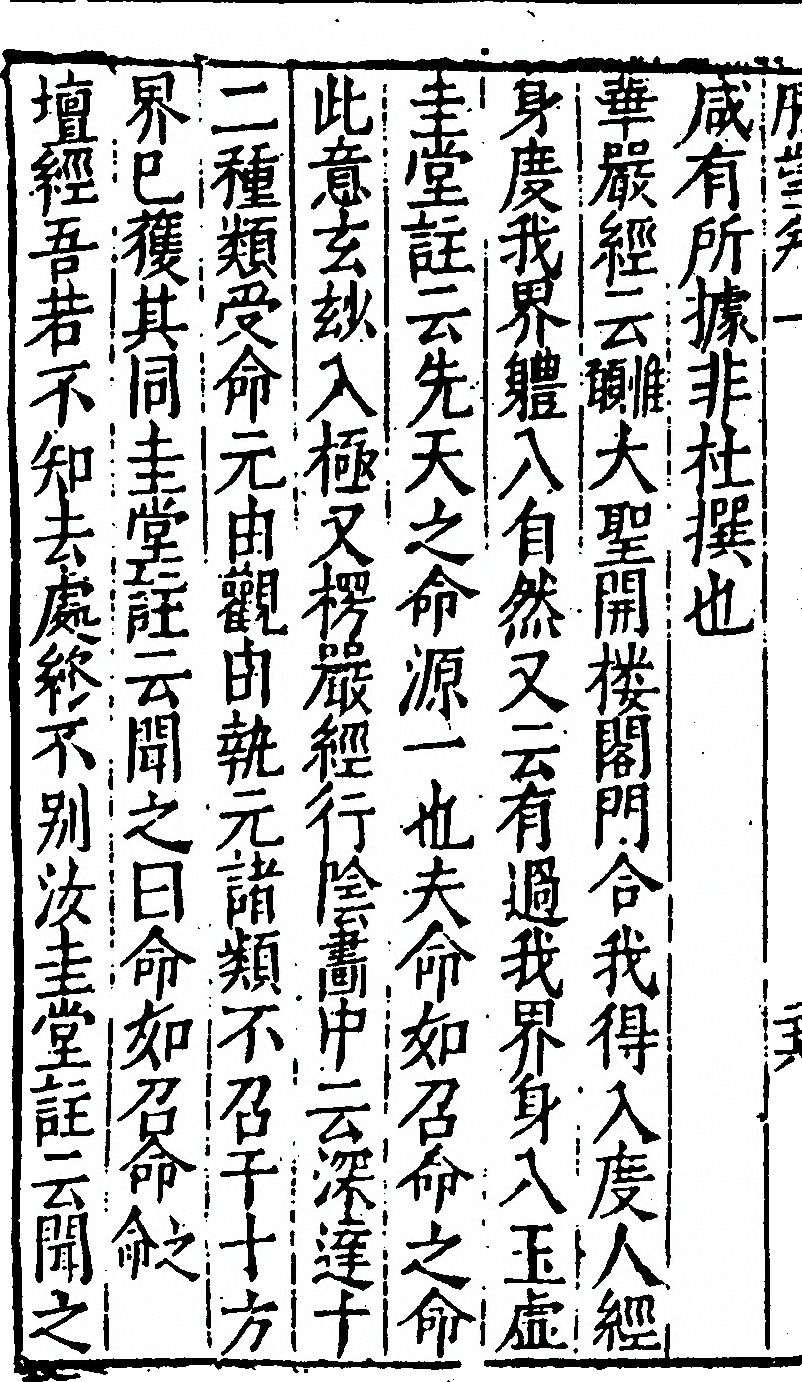 咸有所據非杜撰也
華嚴經云唯願大聖開楼閣門合我得入度人經
身度我界體入自然又云有過我界身入玉虛
圭堂註云先天之命源一也夫命如召命之命
此意玄玅入極又楞嚴經行陰盡中云深達十
二種類受命元由觀由執元諸類不召于十方
界已獲其同圭堂註云聞之曰命如召命之命
壇經吾若不知去處終不别汝圭堂註云聞之